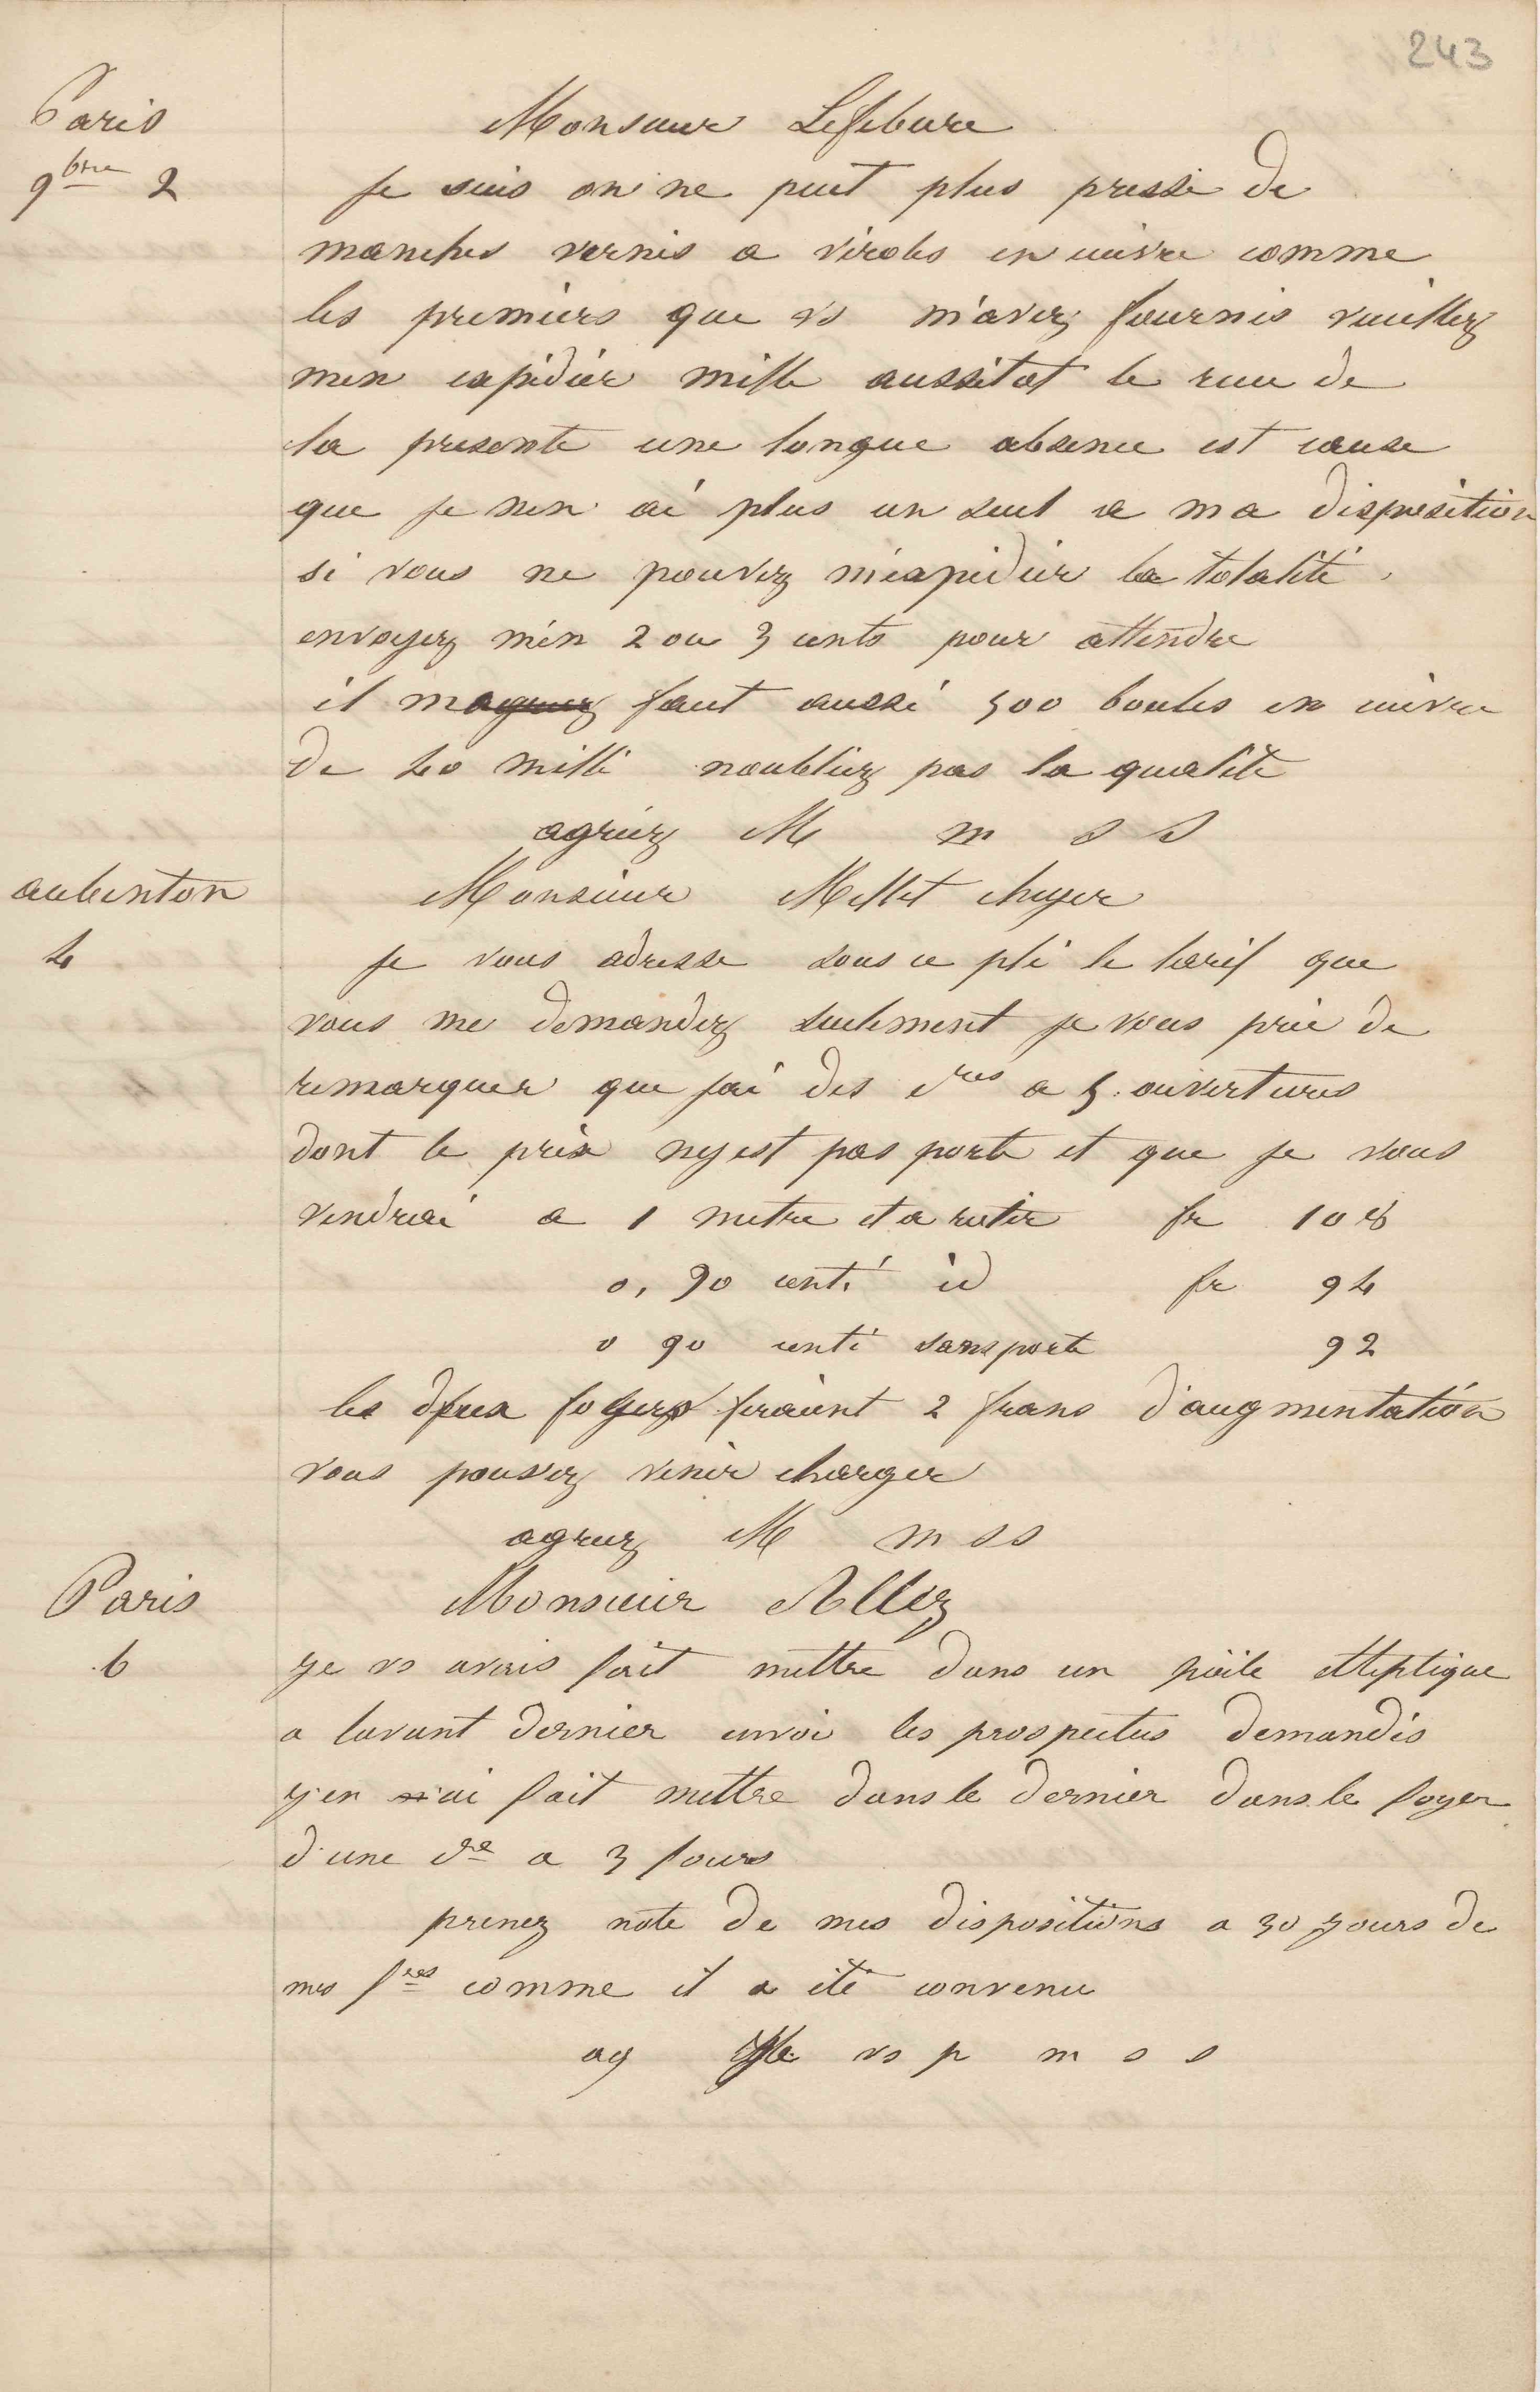 243
Paris
9bre 2
Monsieur Lefebure
Je suis on ne peut plus pressé de
manches vernis a viroles en cuivre comme
les premiers que vs m'avez fournis veuillez
men expédier mille aussitot le recu de
la presente une longue absence est cause
que je nen ai plus un seul a ma disposition
si vous ne pouvez m'expédier la totalité
envoyez m'en 2 ou 3 cents pour attendre
il m faut aussi 500 boules en cuivre
de 40 milli noubliez pas la qualité
agréez M m s s
aubenton
4
Monsieur Millet chuyer
Je vous adresse sous ce pli le tarif que
vous me demandez seulement je vous prie de
remarquer que jai des cres a 5 ouvertures
dont le prix ny est pas porté et que je vous
vendrai a 1 metre et a rotir fr 108
0,90 centi id fr 94
0 90 centi sans porte 92
les deux foyers feraient 2 frans d'augmentation
vous pouvez venir charger
agreez M m s s
Paris
6
Monsieur Allez
Je vs avais fait mettre dans un poile elleptique
a lavant dernier envoi les prospectus demandés
j'en ai fait mettre dans le dernier dans le foyer
d'une cre a 3 fours
prenez note de mes dispositions a 30 jours de
mes fres comme il a été convenu
ag vs p m s s